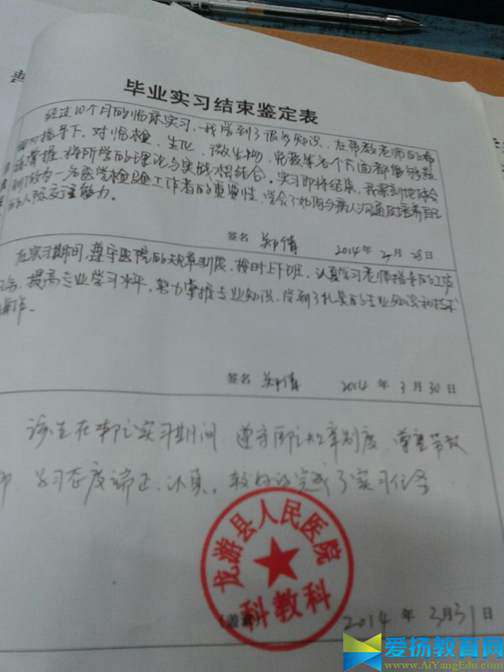 毕业实习结束鉴定表
经过10个月的临床实习,我学到了很多知识,在带教老师的
指导下,对临检、生化、微生物、免疫等各个方面都能够
掌握,将所学的理论与实践相结合。实习即将结束,我
作为一名医学检验工作者的重要性,学会了如何与病人沟通
人际交往能力。
签名 2014 年 月 28 日
在实习期间,遵守医院的规章制度,按时上下班,认真学习老师指导的工作
提高专业学习水平,努力掌握专业知识,得到了扎实的专业知识和技术
操作.
签名 2014 年 3 月 30 日
该生在我院实习期间,遵守医院规章制度,尊重带教
师 学习态度端正、认真。较好的完成了实习任务
龙游县人民医院
科教科
2014 年 3 月 31 日
爱扬教育网
www.AiYangEdu.com